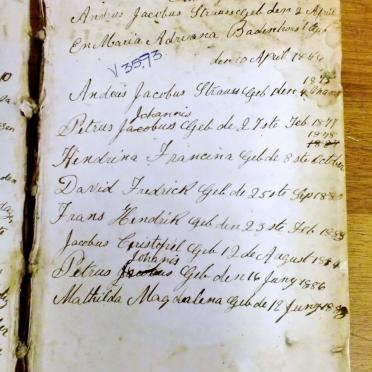 Andrus Jacobus Strauss geb den 2 April
En Maria Adriana Badenhorst
den 10 April 1864
V 3573
1875
Andris Jacobus Strauss Geb den 4
Johannis
Petrus Jacobus Geb de 27ste Feb 1877
1878
Hendrina Francina Geb de 8ste October
David Fredrick Geb de 25ste Sep
Frans Hendrik Geb den 23ste Feb
Jacobus Cristofel Geb 12 de August
Johanis
Petrus Geb den 16 Juny 1886
Mathilda Magdalena Geb de 12 Juny